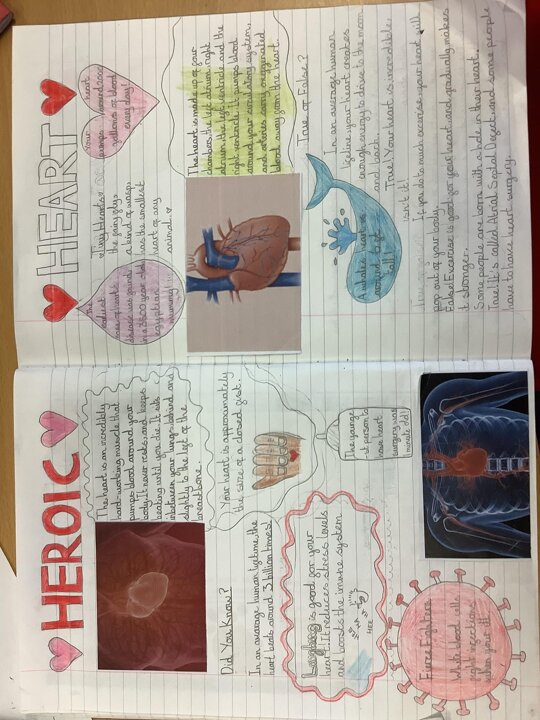 HEROIC
The heart is an incredibly
hard-working muscle that
pumps blood around your
body. It never rests and keeps
beating until you die. It sits
inbetween your lungs, behind and
slightly to the left of the
breastbone.
Did You Know?
In an average human lifetime, the
heart beats around 3 billion times!
Your heart is approximately
the size of a closed fist.
Laughing is good for your
heart. It reduces stress levels
and boosts the imune system
The young-
est person to
have heart
surgery was
1 minute old!
Firce Fighters
White blood cells
fight infections
when your ill
HEART
The
earliest
case of heart
disease was found
in a 3500 year old
egyptian
mummy
Tiny Hearts
The fairy fly,
a kind of wasp,
has the smallest
heart of any
animal.
Your heart
pumps around 2000
gallons of blood
every day!
The heart is made up of four
chambers, the left atrium, right
atrium, the left ventricle and the
right ventricle. It pumps blood
around your circulatory system,
and arteries carry oxygenated
blood away from the heart.
True or False?
A whales heart is
around 5 feet
tall!
In an average human
lifetime your heart creates
enough energy to drive to the moon
and back.
True! Your heart is incredible
isn't it!
If you do to much excersise your heart will
pop out of your body.
False! Excersise is good for your heart and gradually makes
it stronger.
Some people are born with a hole in their heart.
True! It is called Atrial Septal Defect and some people
have to have heart surgery.